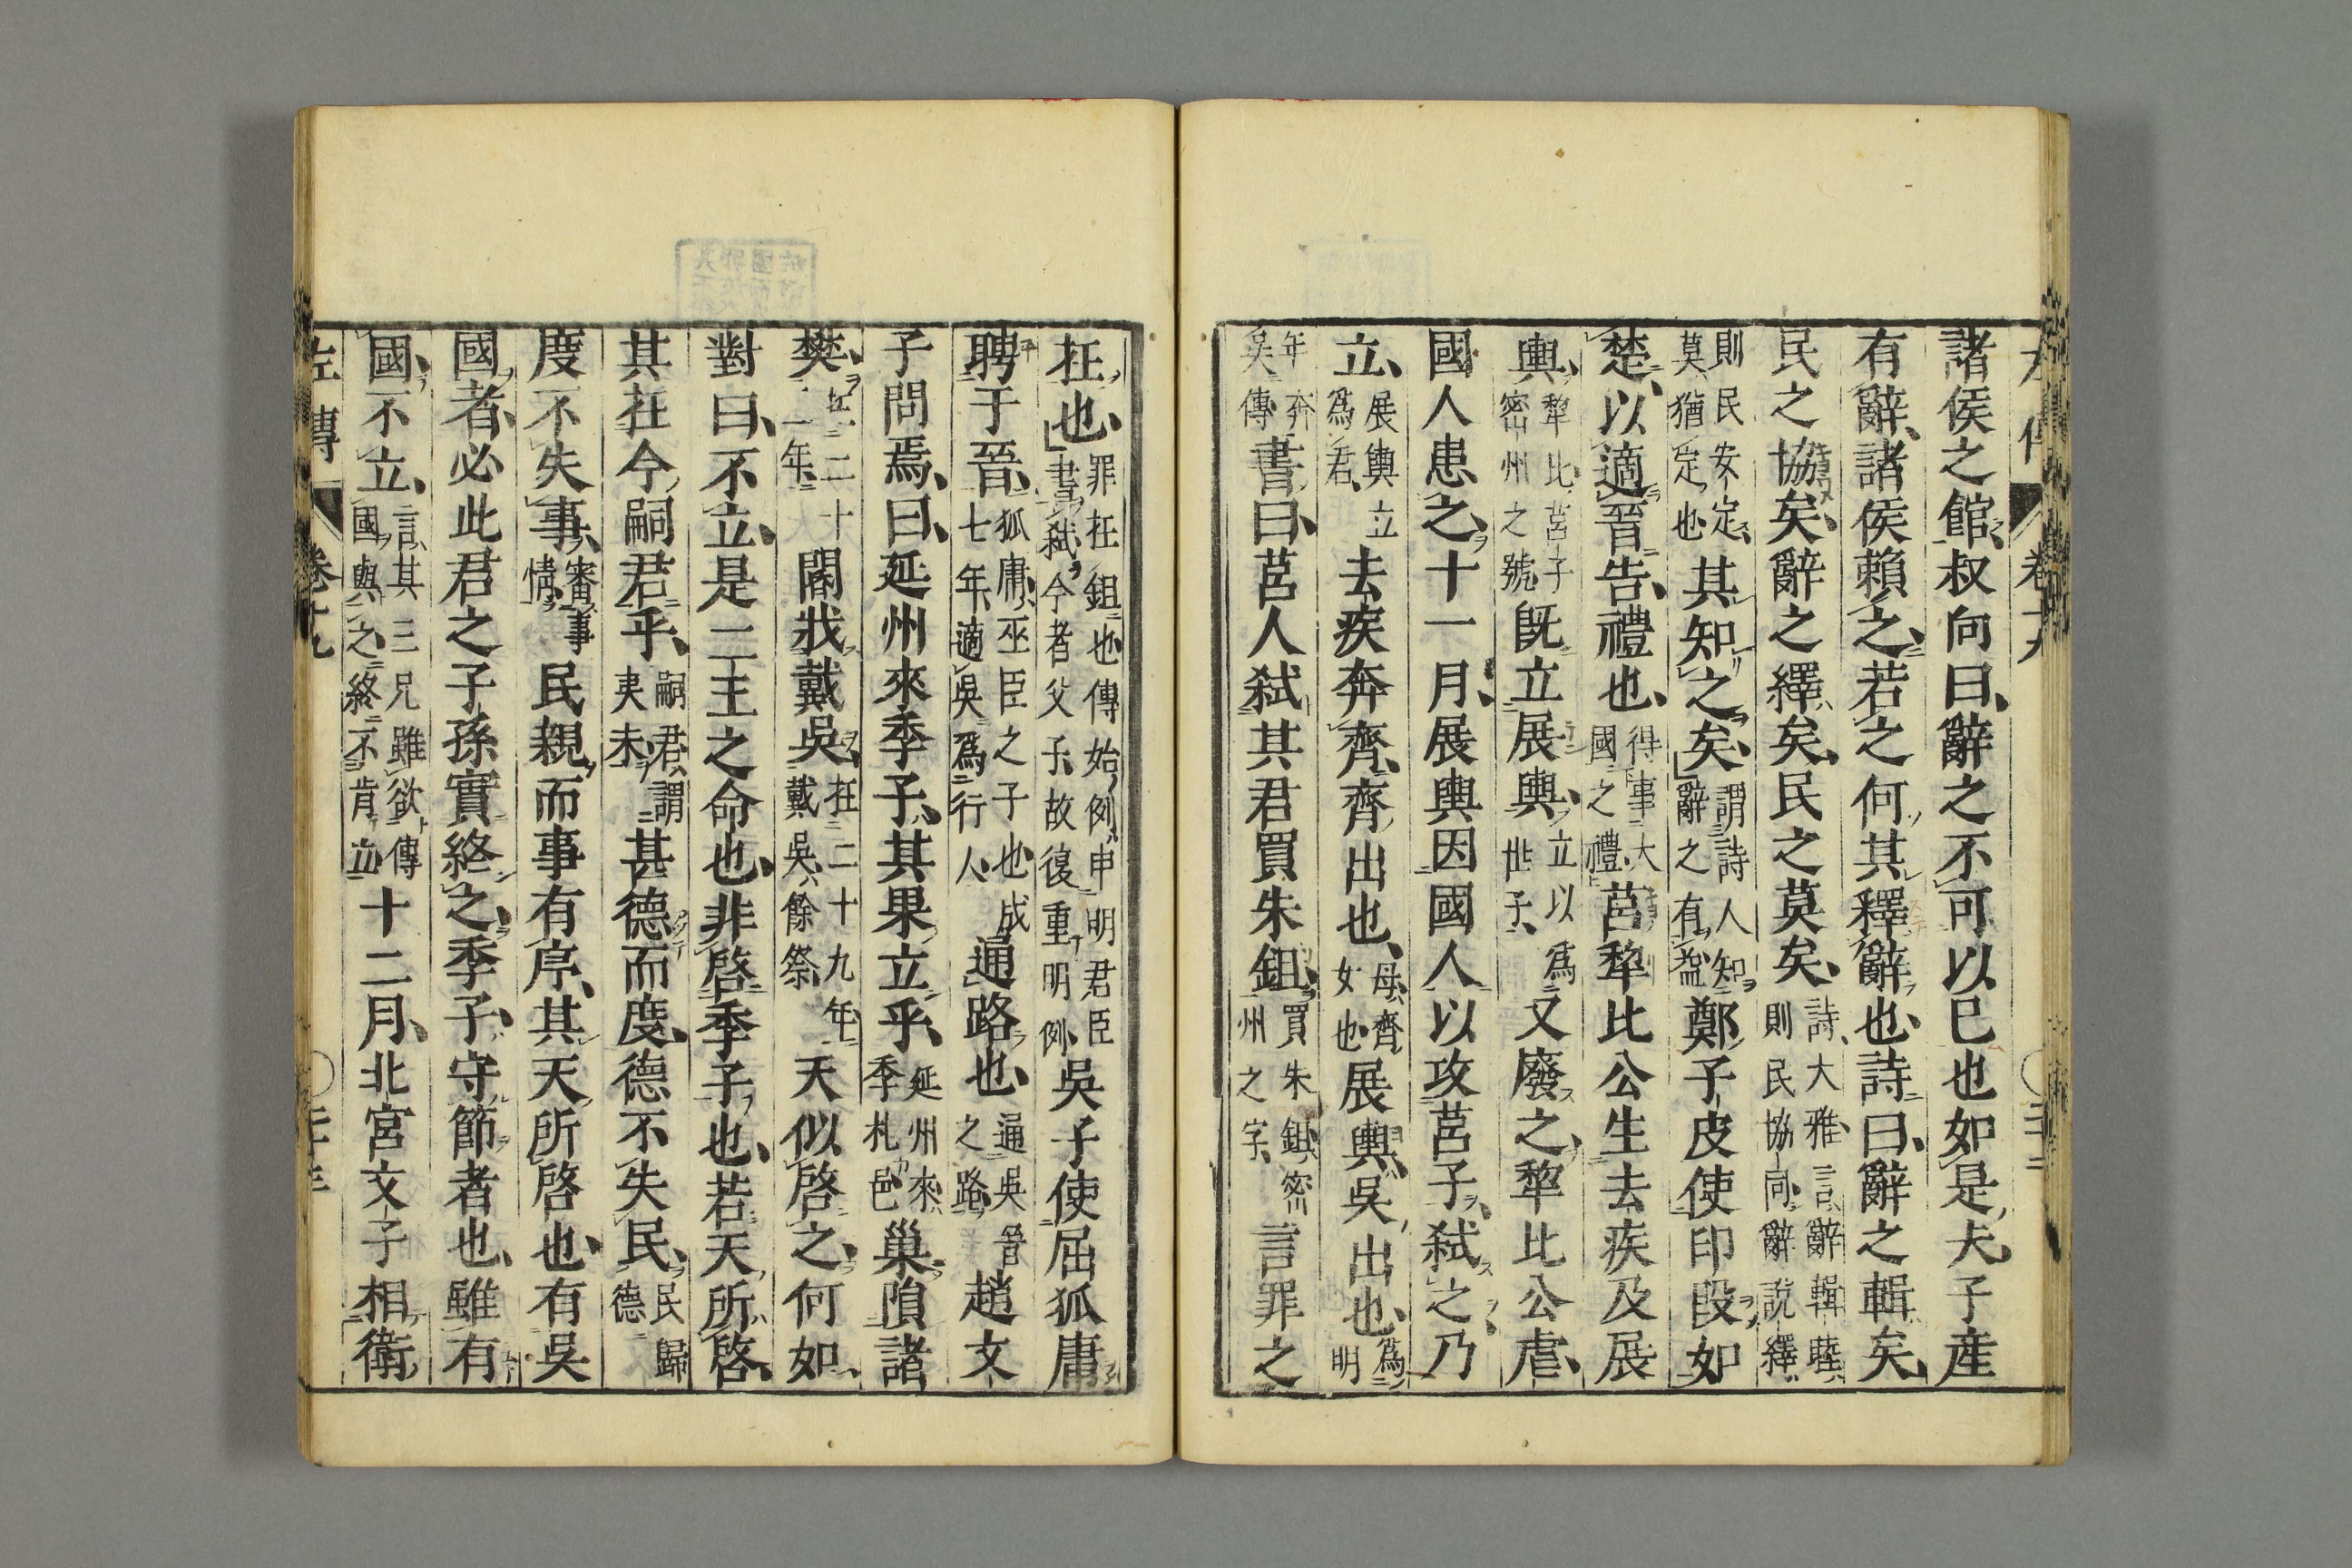 諸侯之館、叔向曰、辭之不可以已也如是、夫、子産
有辭、諸侯賴之、若之何其釋辭也、詩曰、辭之輯矣、
民之協矣、辭之繹矣、民之莫矣、詩、大雅、言、辭輯睦、則民協同、辭說繹、
則民安定、莫猶定也其知之矣、謂詩人知辭之有益鄭子皮使印段如
楚、以適晉告、禮也、得事大國之禮、莒犁比公生去疾及展
輿、犁比、莒子密州之號既立展輿、立以爲世子、又廢之、犁比公虐、
國人患之、十一月、展輿因國人以攻莒子、弑之、乃
立、展輿立爲君、去疾奔齊、齊出也、母、齊女也展輿、吳出也、爲明
年奔吳傳書曰、莒人弑其君買朱鉏、買朱鉏、密州之字、言罪之
在也、罪在鉏也、傳始例、申明君臣書弑、今者父子、故復重明例、吳子使屈狐庸
聘于晉、狐庸、巫臣之子也、成七年、適吳爲行人、通路也、通吳晉之路、趙文
子問焉、曰、延州來季子、其果立乎、延州來、季札邑巢隕諸
樊、在二十二年、閽戕戴吳、在二十九年戴吳、餘祭、天似啓之、何如、
對曰、不立、是二王之命也、非啓季子也、若天所啓、
其在今嗣君乎、嗣君、謂夷末、甚德而度、德不失民、民歸德
度不失事、審事情、民親而事有序、其天所啓也、有吳
國者、必此君之子孫實終之、季子、守節者也、雖有
國、不立、言、其三兄雖欲傳國與之、終不肯立十二月、北宮文子相衛
左傳 卷十九